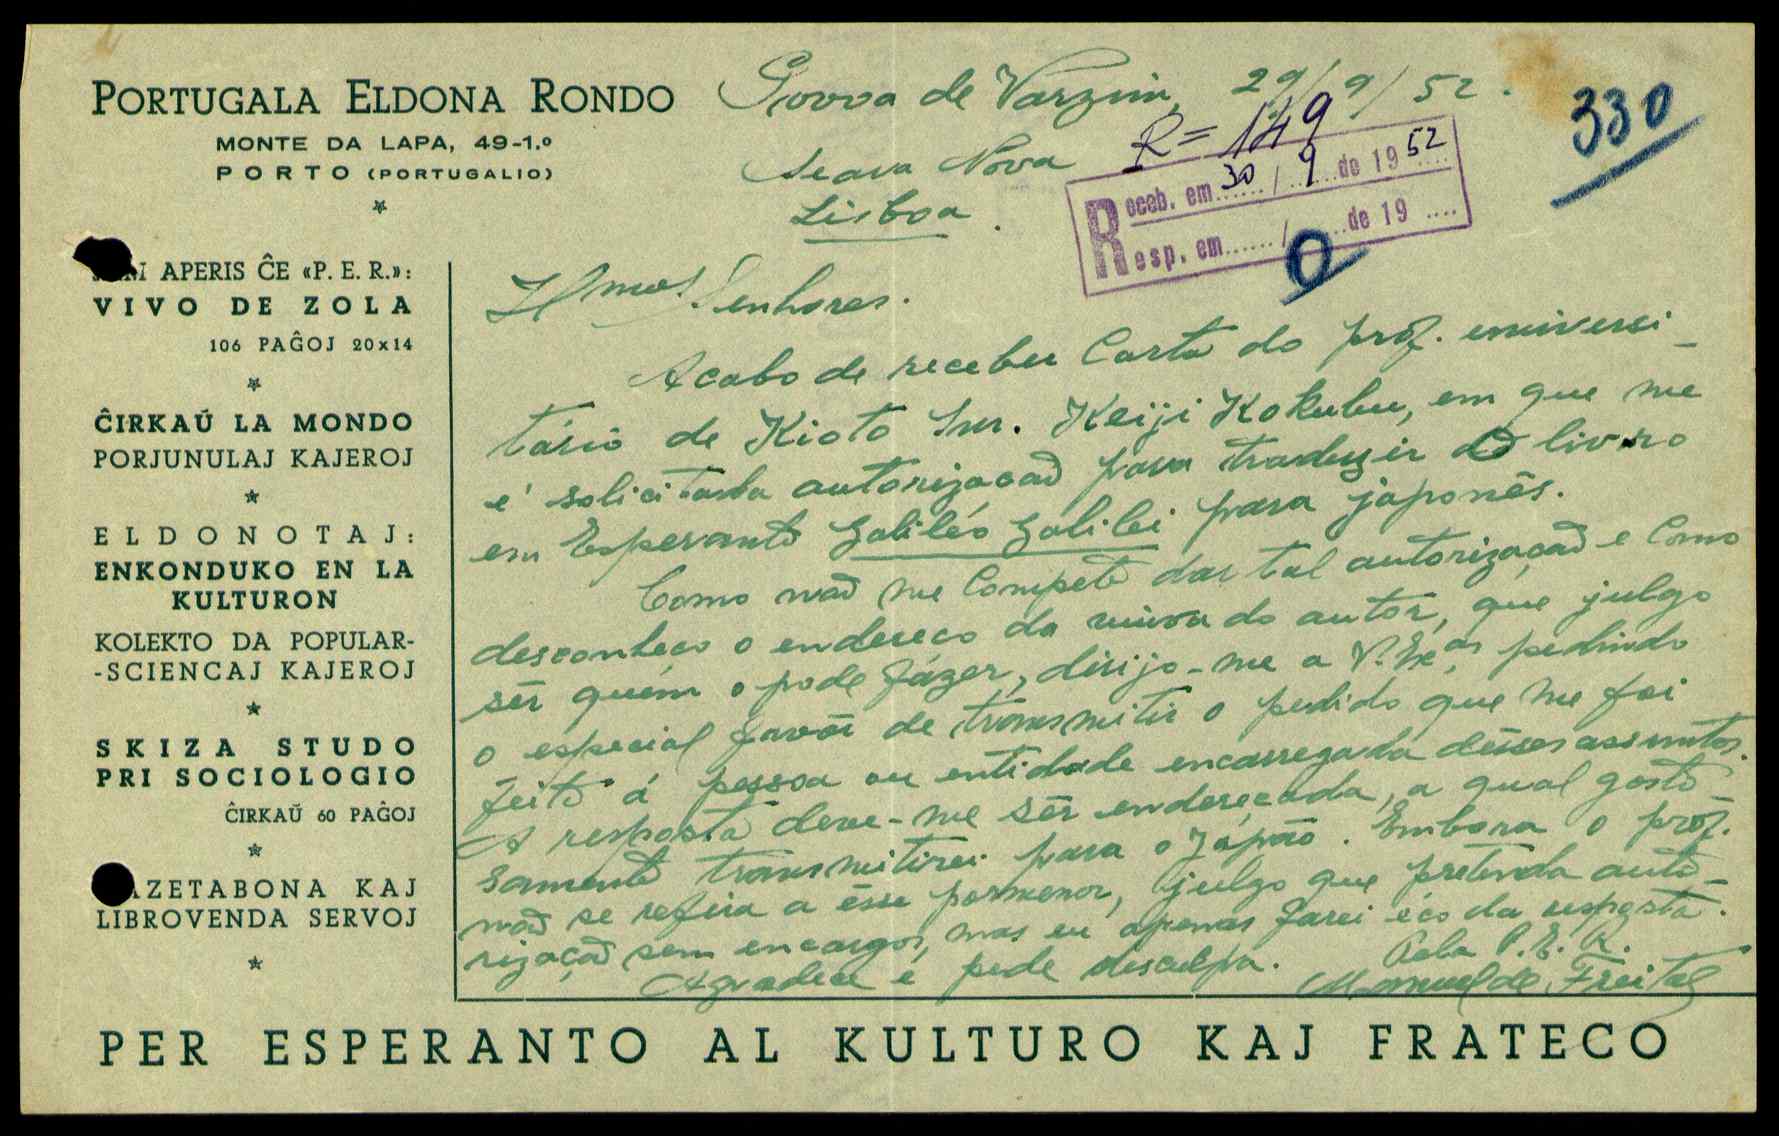 PORTUGALA ELDONA RONDO
MONTE DA LAPA, 49-1.º
PORTO (PORTUGALIO)
APERIS ĈE «P. E. R.»:
VIVO DE ZOLA
106 PAĜOJ 20x14
ĈIRKAŬ LA MONDO
PORJUNULAJ KAJEROJ
ELDONOTAJ:
ENKONDUKO EN LA
KULTURON
KOLEKTO DA POPULAR-
-SCIENCAJ KAJEROJ
SKIZA STUDO
PRI SOCIOLOGIO
ĈIRKAŬ 60 PAĜOJ
AZETABONA KAJ
LIBROVENDA SERVOJ
Povoa de Varzim, 29/9/52.
330
R=149
Receb. em 30/9 de 1952
Resp. em ....../...... de 19 ....
0
Seara Nova
Lisboa.
Ilmos Senhores.
Acabo de receber Carta do prof. universi-
tário de Kioto Snr. Keiji Kokubu, em que me
é solicitada autorizacaõ para traduzir o livro
em Esperanto Galiléo Galilei para japonês.
Como naõ me Compete dar tal autorizaçaõ e Como
desconheco o endereco da viuva do autor, que julgo
sêr quem o pode fázer, dirijo-me a V. Ex.as pedindo
o especial favôr de transmitir o pedido que me foi
feito á pessoa ou entidade encarregada dêsses assuntos.
A resposta deve-me sêr endereçada, a qual gosto-
samente transmitirei para o Japão. Embora o prof.
naõ se refira a êsse pormenor, julgo que pretenda auto-
rizaçaõ sem encargos, mas eu apenas farei éco da resposta.
Agradece e pede desculpa.
Pela P. E. R.
Manuel de Freitas
PER ESPERANTO AL KULTURO KAJ FRATECO